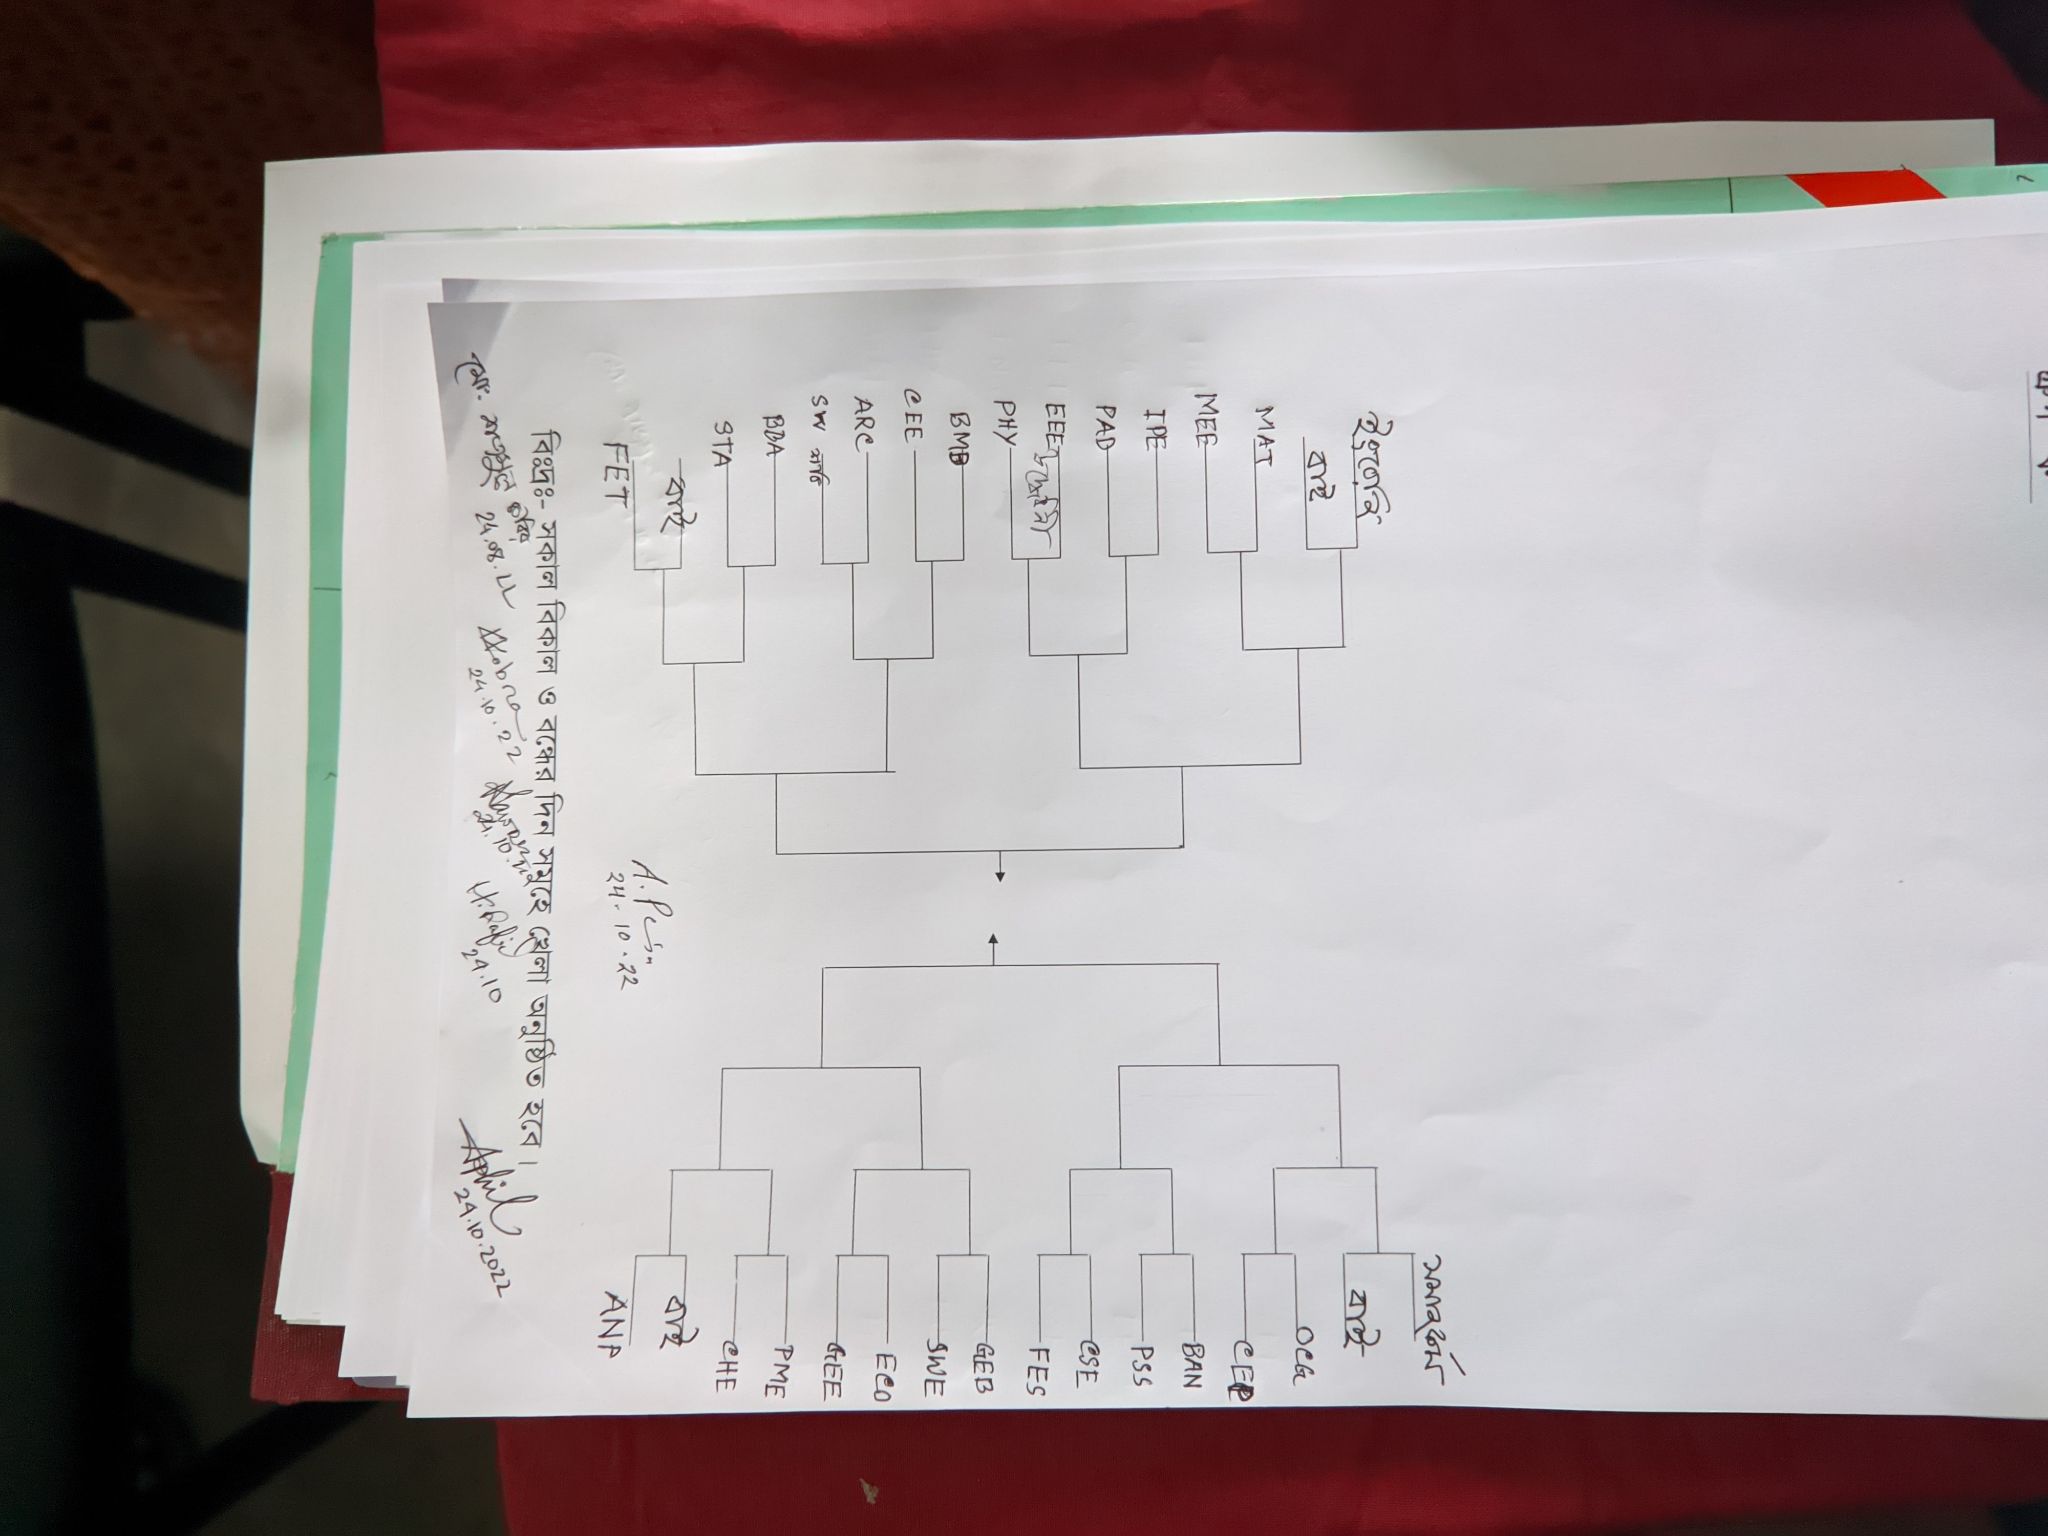 ইংরেজি
বাই
MAT
MEE
IPE
PAD
EEE
PHY
BMB
CEE
ARC
SW
BBA
STA
বাই
FET
সমাজকর্ম
বাই
OCG
CEP
BAN
PSS
CSE
FES
GEB
SWE
ECO
GEE
PME
CHE
বাই
ANP
24.10.22
বিঃদ্রঃ- সকাল বিকাল ও বন্ধের দিন সমূহে খেলা অনুষ্ঠিত হবে।
24.10.22
24.10
24.10.2022